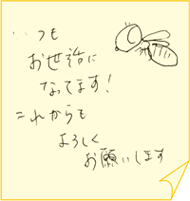 いつも
お世話に
なってます!
これからも
よろしく
お願いします